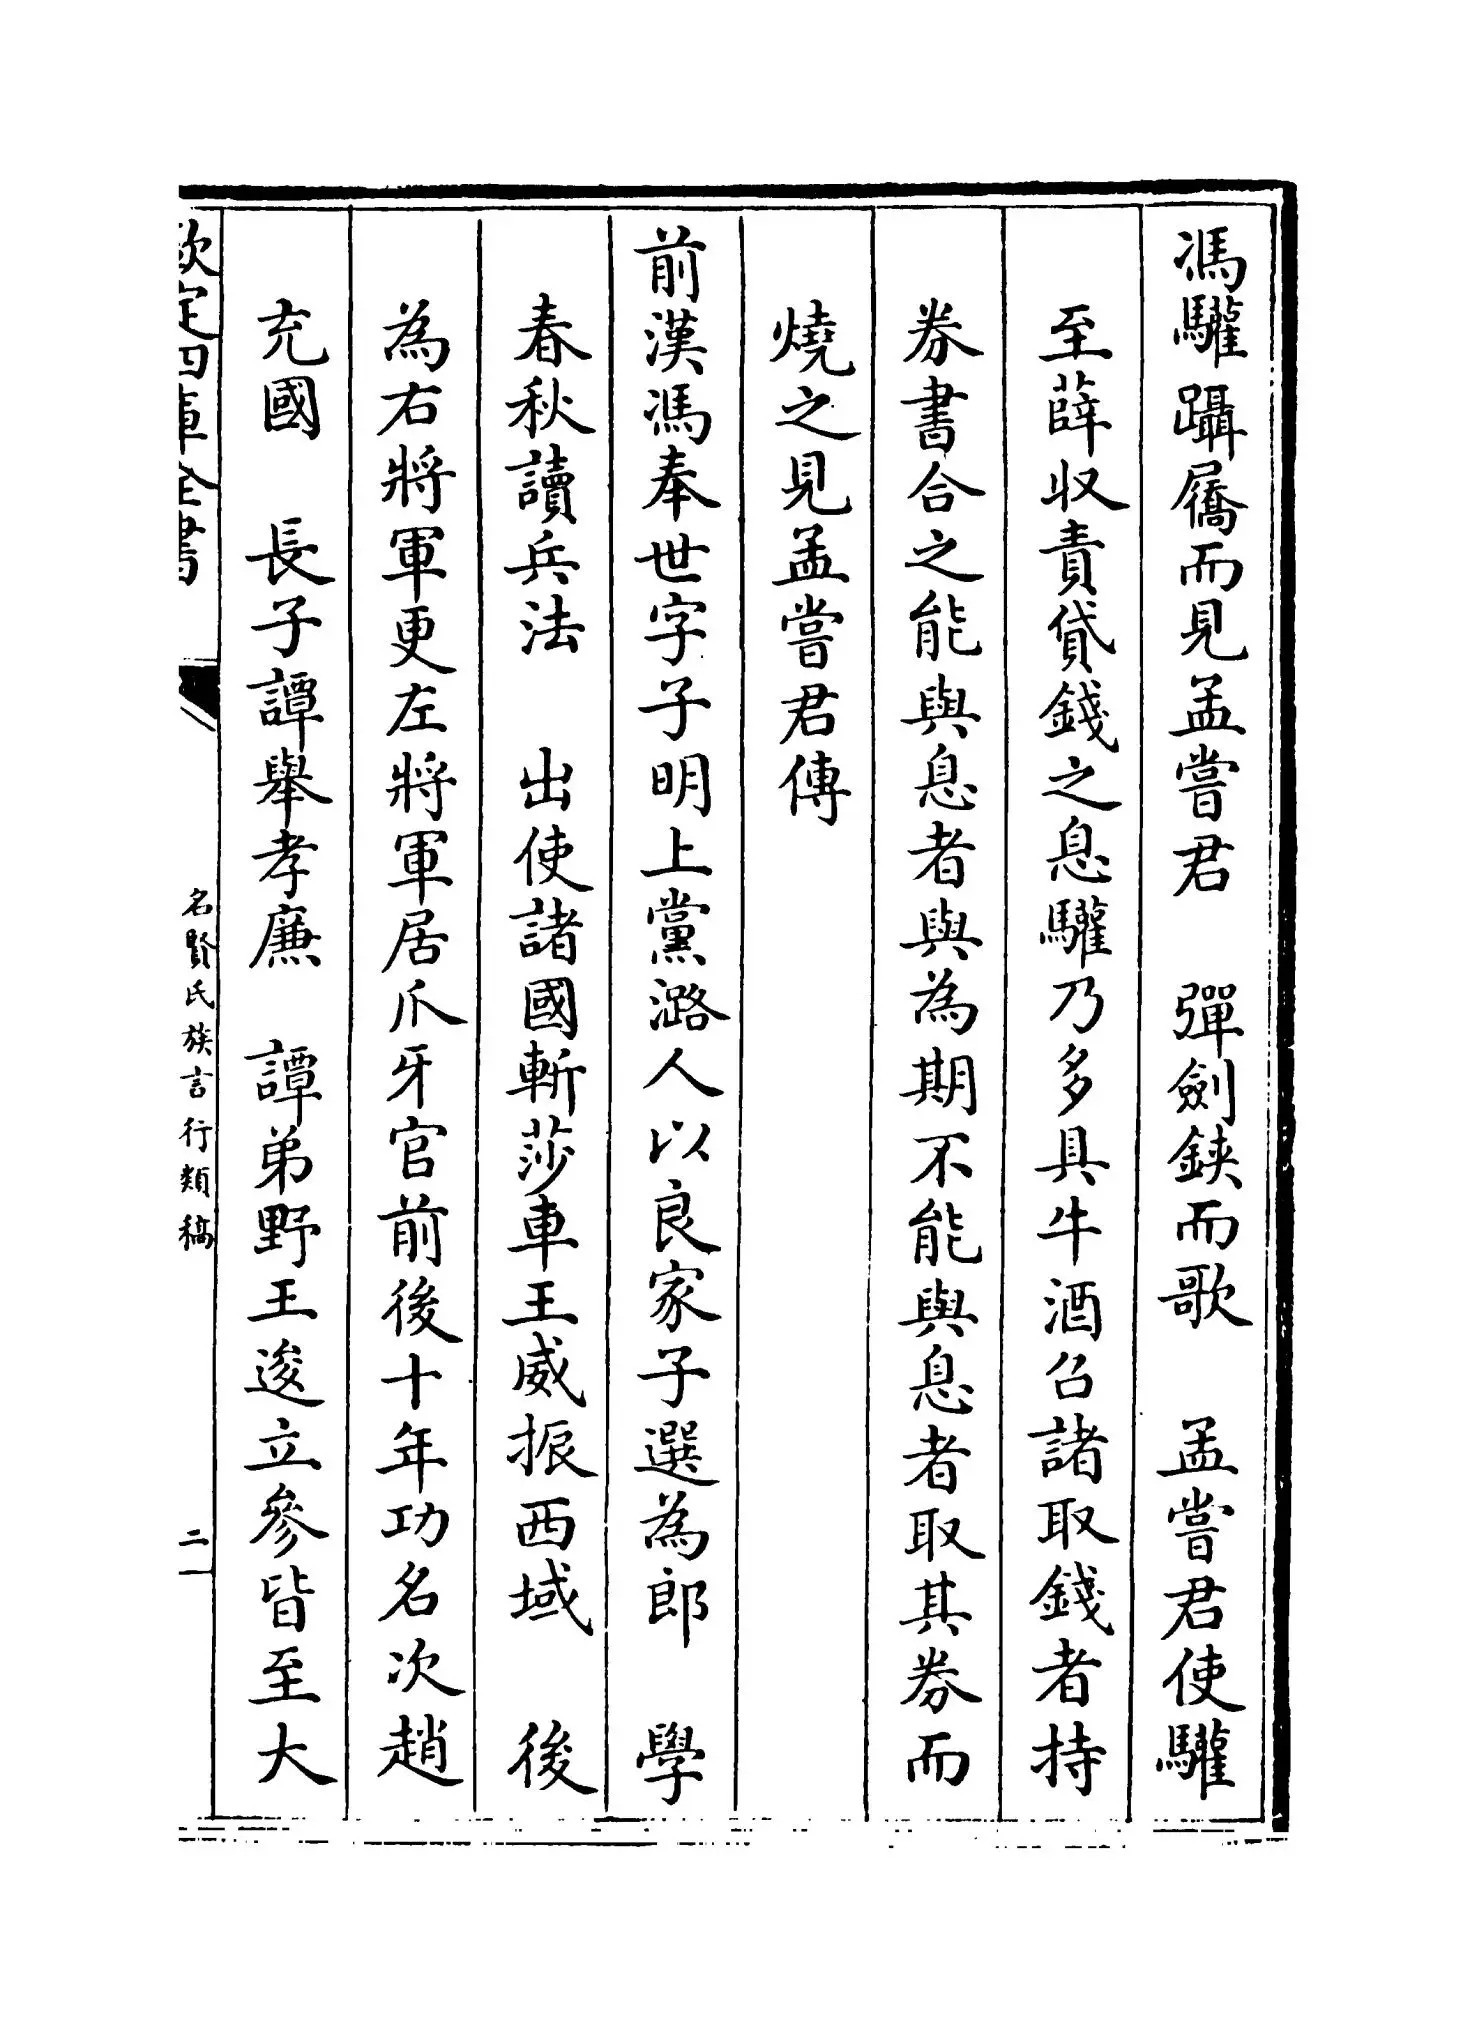 馮驩躡屩而見孟嘗君　彈劍鋏而歌　孟嘗君使驩
至薛収責貸錢之息驩乃多具牛酒召諸取錢者持
券書合之能與息者與為期不能與息者取其券而
燒之見孟嘗君傳
前漢馮奉世字子明上黨潞人以良家子選為郎　學
春秋讀兵法　出使諸國斬莎車王威振西域　後
為右將軍更左將軍居爪牙官前後十年功名次趙
充國　長子譚舉孝廉　譚弟野王逡立參皆至大
欽定四庫全書
名賢氏族言行類稿
二